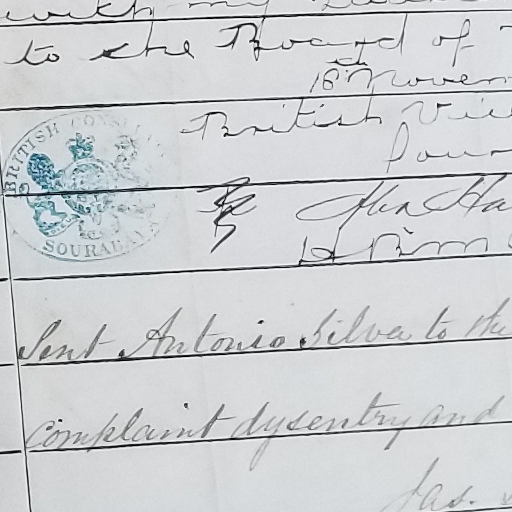 with my
to the Board of
16th Novem
British Vic
BRITISH CONSU
SOURABAYA
Sent Antonio Silva to the
complaint dysentry and
Jas.